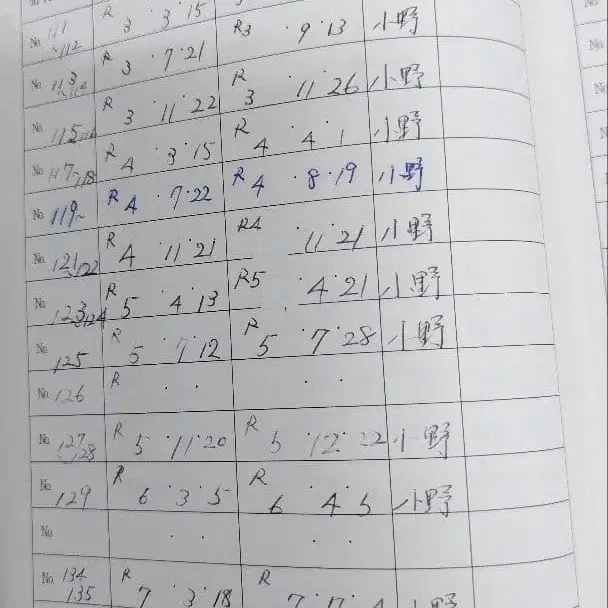 No. 111~112 R3・3・15 R3・9・13 小野
No. 113~114 R3・7・21 R3・11・26 小野
No. 115~116 R3・11・22 R4・4・1 小野
No. 117~118 R4・3・15 R4・8・19 小野
No. 119~ R4・7・22
No. 121~122 R4・11・21 R4・11・21 小野
No. 123~124 R5・4・13 R5・4・21 小野
No. 125 R5・7・12 R5・7・28 小野
No. 126 R ・ ・ ・ ・
No. 127~128 R5・11・20 R5・12・22 小野
No. 129 R6・3・5 R6・4・5 小野
No. ・ ・ ・ ・
No. 134 135 R7・3・18 R7・ 小野